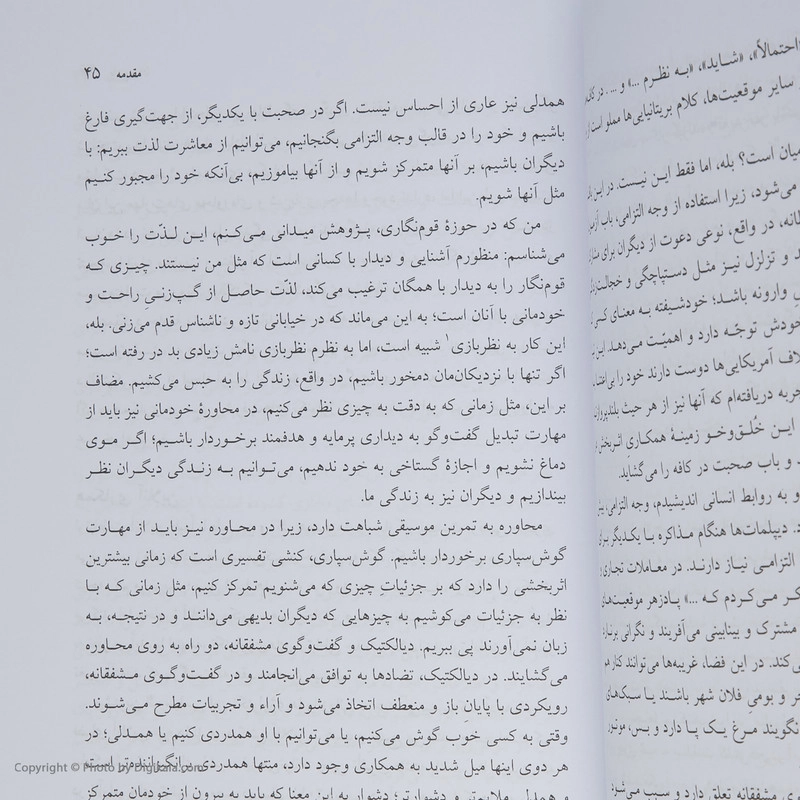 مقدمه ۴۵
همدلی نیز عاری از احساس نیست. اگر در صحبت با یکدیگر، از جهت‌گیری فارغ
باشیم و خود را در قالب وجه التزامی بگنجانیم، می‌توانیم از معاشرت لذت ببریم: با
دیگران باشیم، بر آنها متمرکز شویم و از آنها بیاموزیم، بی‌آنکه خود را مجبور کنیم
مثل آنها شویم.
من که در حوزهٔ قوم‌نگاری، پژوهش میدانی می‌کنم، این لذّت را خوب
می‌شناسم: منظورم آشنایی و دیدار با کسانی است که مثل من نیستند. چیزی که
قوم‌نگار را به دیدار با همگان ترغیب می‌کند، لذّت حاصل از گپ‌زنیِ راحت و
خودمانی با آنان است؛ به این می‌ماند که در خیابانی تازه و ناشناس قدم می‌زنی. بله،
این کار به نظربازی۱ شبیه است، اما به نظرم نظربازی نامش زیادی بد در رفته است؛
اگر تنها با نزدیکان‌مان دمخور باشیم، در واقع، زندگی را به حبس می‌کشیم. مضاف
بر این، مثل زمانی که به دقت به چیزی نظر می‌کنیم، در محاورهٔ خودمانی نیز باید از
مهارت تبدیل گفت‌وگو به دیداری پرمایه و هدفمند برخوردار باشیم؛ اگر موی
دماغ نشویم و اجازهٔ گستاخی به خود ندهیم، می‌توانیم به زندگی دیگران نظر
بیندازیم و دیگران نیز به زندگی ما.
محاوره به تمرین موسیقی شباهت دارد، زیرا در محاوره نیز باید از مهارت
گوش‌سپاری برخوردار باشیم. گوش‌سپاری، کنشی تفسیری است که زمانی بیشترین
اثربخشی را دارد که بر جزئیاتِ چیزی که می‌شنویم تمرکز کنیم، مثل زمانی که با
نظر به جزئیات می‌کوشیم به چیزهایی که دیگران بدیهی می‌دانند و در نتیجه، به
زبان نمی‌آورند پی ببریم. دیالکتیک و گفت‌وگوی مشفقانه، دو راه به روی محاوره
می‌گشایند. در دیالکتیک، تضادها به توافق می‌انجامند و در گفت‌وگوی مشفقانه،
رویکردی با پایانِ باز و منعطف اتخاذ می‌شود و آراء و تجربیات مطرح می‌شوند.
وقتی به کسی خوب گوش می‌کنیم، یا می‌توانیم با او همدردی کنیم یا همدلی؛ در
هر دوی اینها میل شدید به همکاری وجود دارد، منتها همدردی برانگیزاننده‌تر است
و همدلی ملایم‌تر و دشوارتر؛ دشوار به این معنا که باید به بیرون از خودمان متمرکز
احتمالاً»، «شاید»، «به نظرم ...» و ... . در
سایر موقعیت‌ها، کلام بریتانیایی‌ها مملو است
میان است؟ بله، اما فقط این نیست. در این
می‌شود، زیرا استفاده از وجه التزامی، باب
در واقع، نوعی دعوت از دیگران برای
و تزلزل نیز مثل دستپاچگی و خجالت
وارونه باشد؛ خودشیفته به معنای
خودش توجّه دارد و اهمیّت می‌دهد. این
آمریکایی‌ها دوست دارند خود را
دریافته‌ام که آنها نیز از هر حیث
این خُلق‌وخو زمینهٔ همکاری اثربخش
و باب صحبت در کافه را می‌گشاید.
و به روابط انسانی اندیشیدم، وجه التزامی،
دیپلمات‌ها هنگام مذاکره با یکدیگر
التزامی نیاز دارند. در معاملات تجاری
می‌کردم که ...» پادزهر
مشترک و بینابینی می‌آفریند و نگرانی
در این فضا، غریبه‌ها می‌توانند کنار هم
و بومیِ فلان شهر باشند یا
نگویند مرغ یک پا دارد و بس،
مشفقانه تعلق دارد و سبب می‌شود
Copyright © Photo by Digikala.com